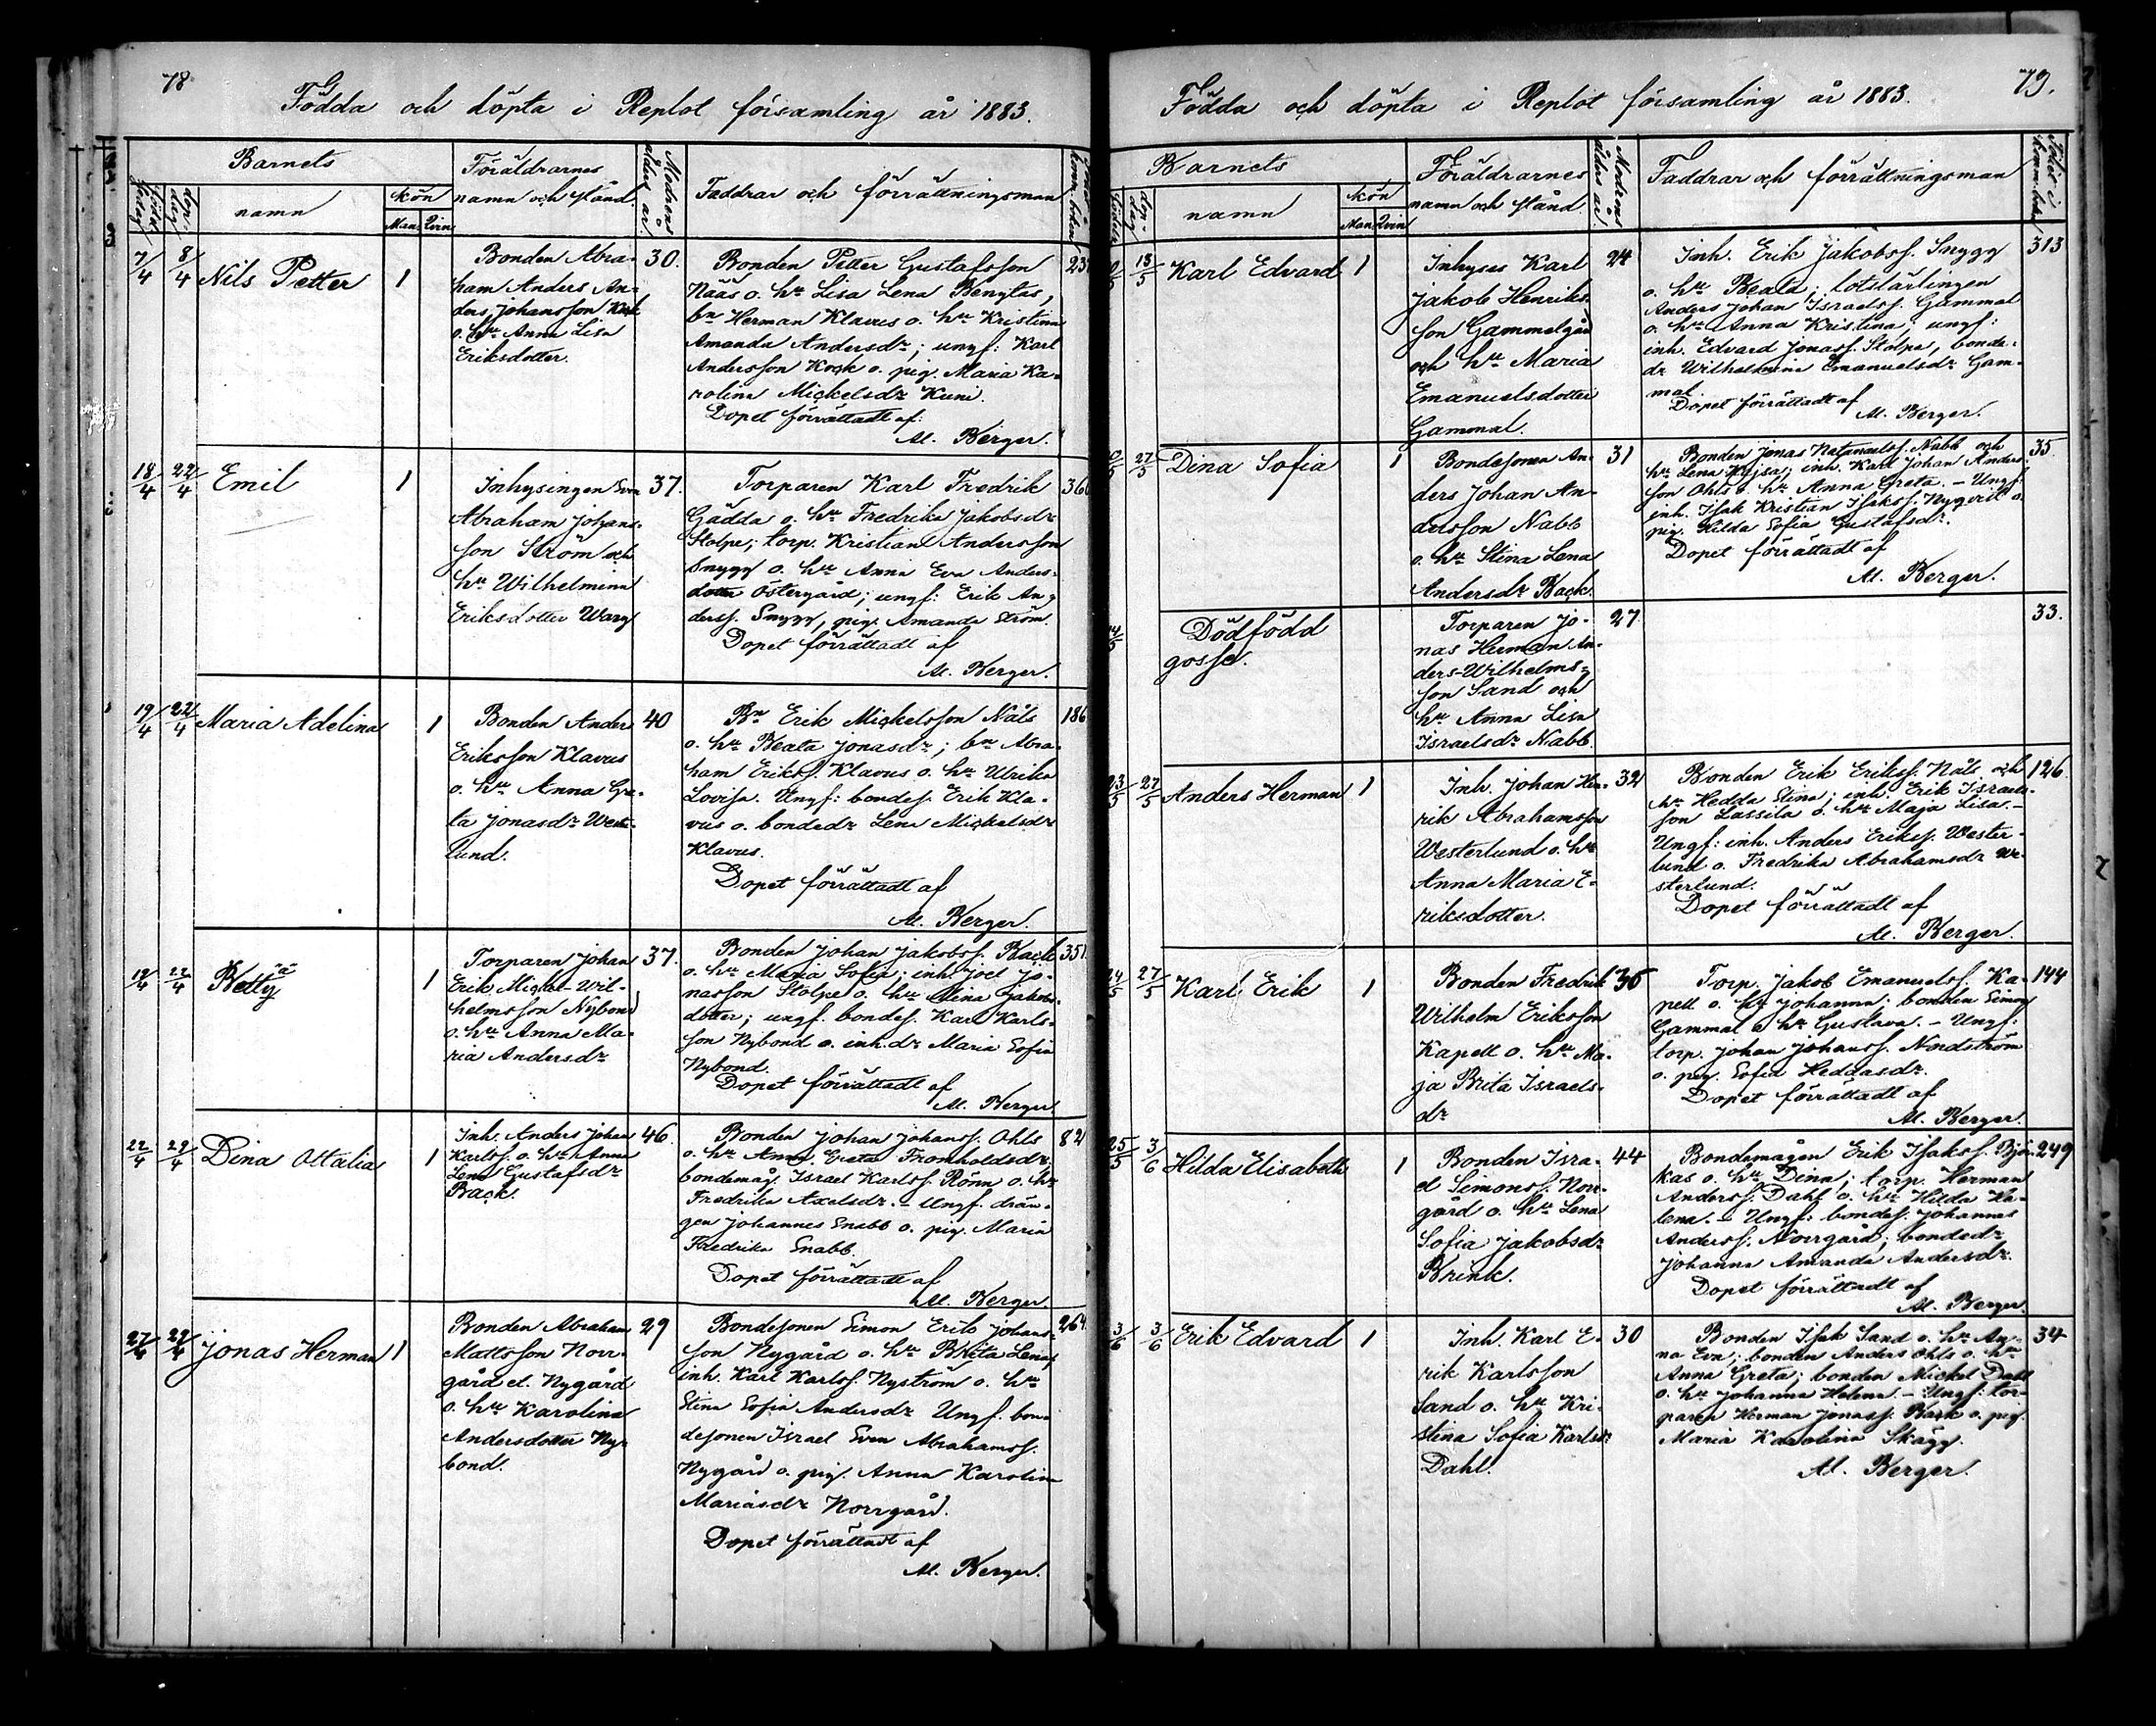 78
Födda och döpta i Replot församling år 1883.
Barnets
namn
kön
Man
Qvin
Föräldrarnes
namn och stånd
Modrens
ålder år
Faddrar och förrättningsman
7/4 8/4 Nils Petter 1
Bonden Abra-
ham Anders An-
ders Johansson
o. hu Anna Lisa
Eriksdotter.
30.
Bonden Petter Gustafsson
Näås o. hu Lisa Lena Bengtas,
bn Herman Klavus o. hu Kristina
Amanda Andersdr; ungf: Karl
Andersson Kosk o. pig. Maria Ka-
rolina Mickelsdr Kuni.
Dopet förrättadt af:
M. Berger.
23
18/4 22/4 Emil 1
Inhysingen Sven
Abraham Johans-
son Ström och
hu Wilhelmina
Eriksdotter Warg
37.
Torparen Karl Fredrik
Gädda o. hu Fredrika Jakobsdr
Stolpe; torp. Kristian Andersson
Snygg o. hu Anna Eva Anders-
dotter Östergård; ungf: Erik An-
derss. Snygg, pig. Amanda Ström.
Dopet förrättadt af
M. Berger.
36
19/4 22/4 Maria Adelina 1
Bonden Anders
Eriksson Klavus
o. hu Anna Gre-
ta Jonasdr Wester-
lund.
40
Bn Erik Mickelsson Näls
o. hu Beata Jonasdr; bn Abra-
ham Erikss. Klavus o. hu Ulrika
Lovisa. Ungf: bondes. Erik Kla-
vus o. bondedr Lena Mickelsdr
Klavus.
Dopet förrättadt af
M. Berger.
186
19/4 22/4 Betty 1
Torparen Johan
Erik Wil-
helmsson Nybond
o. hu Anna Ma-
ria Andersdr
37.
Bonden Johan Jakobss. Back
o. hu Maria Sofia; inh. Joel Jo-
nasson Stolpe o. hu Stina Jakobs-
dotter; ungf. bondes. Karl Karls-
son Nybond o. inh.dr Maria Sofia
Nybond.
Dopet förrättadt af
M. Berger.
351
22/4 29/4 Dina Ottalia 1
Inh. Anders Johan
Karlss. o. hu Anna
Lena Gustafsdr
Back.
46.
Bonden Johan Johanss. Ohls
o. hu Anna Greta Fromholdsdr
bondemåg. Israel Karlss. Rönn o. hu
Fredrika Axelsdr. - Ungf. drän-
gen Johannes Snabb o. pig. Maria
Fredrika Snabb.
Dopet förrättadt af
M. Berger.
82
27/4 29/4 Jonas Herman 1
Bonden Abraham
Mattsson Norr-
gård el. Nygård
o. hu Karolina
Andersdotter Ny-
bond.
29
Bondesonen Simon Erik Johans-
son Nygård o. hu Brita Lena;
inh. Karl Karlss. Nyström o. hu
Stina Sofia Andersdr Ungf. bon-
desonen Israel Sven Abrahamss.
Nygård o. pig. Anna Karolina
Mariasdr Norrgård.
Dopet förrättadt af
M. Berger.
264
79.
Födda och döpta i Replot församling år 1883.
Barnets
namn
kön
Man
Qvin
Föräldrarnes
namn och stånd.
Modrens
ålder år
Faddrar och förrättningsman
13/5 Karl Edvard 1
Inhyses Karl
Jakob Henriks-
son Gammelgård
och hu Maria
Emanuelsdotter
Gammal.
24
Inh. Erik Jakobss. Snygg
o. hu Beata; lotslärlingen
Anders Johan Israelss. Gammal
o. hu Anna Kristina; ungf:
inh. Edvard Jonass. Stolpe, bonde-
dr Wilhelmina Emanuelsdr Gam-
mal
Dopet förrättadt af
M. Berger.
313
27/5 Dina Sofia 1
Bondesonen An-
ders Johan An-
dersson Nabb
o. hu Stina Lena
Andersdr Back.
31
Bonden Jonas Natanaelss. Nabb och
hu Lena Kajsa; inh. Karl Johan Anders-
son Ohls o. hu Anna Greta. - Ungf:
inh. Isak Kristian Isakss. Nyqvist o.
pig. Hilda Sofia Gustafsdr.
Dopet förrättadt af
M. Berger.
35
14/5
Dödfödd
gosse.
Torparen Jo-
nas Herman An-
ders-Wilhelms-
son Sand och
hu Anna Lisa
Israelsdr Nabb.
27
33.
23/5 27/5 Anders Herman 1
Inh. Johan Hen-
rik Abrahamsson
Westerlund o. hu
Anna Maria E-
riksdotter.
32
Bonden Erik Erikss. Näls och
hu Hedda Stina; inh. Erik Israels-
son Lassila o. hu Maja Lisa. -
Ungf: inh. Anders Erikss. Wester-
lund o. Fredrika Abrahamsdr We-
sterlund.
Dopet förrättadt af
M. Berger.
126.
24/5 27/5 Karl Erik 1
Bonden Fredrik
Wilhelm Eriksson
Kapell o. hu Ma-
ja Brita Israels-
dr
36
Torp. Jakob Emanuelss. Ka-
pell o. hu Johanna; bonden Simon
Gammal o hu Gustava. - Ungf:
torp. Johan Johanss. Nordström
o. pig. Sofia Heddasdr.
Dopet förrättadt af
M. Berger.
144
25/5 3/6 Hilda Elisabeth 1
Bonden Isra-
el Simonss. Norr-
gård o. hu Lena
Sofia Jakobsdr
Brink.
44
Bondemågen Erik Isakss. Björ-
kas o. hu Dina; torp. Herman
Anderss. Dahl o. hu Hilda He-
lena. - Ungf: bondes. Johannes
Anderss. Norrgård; bondedr
Johanna Amanda Andersdr.
Dopet förrättadt af
M. Berger.
249
3/6 3/6 Erik Edvard 1
Inh. Karl E-
rik Karlsson
Sand o. hu Kri-
stina Sofia Karlsdr
Dahl.
30
Bonden Isak Sand o. hu An-
na Eva; bonden Anders Ohls o. hu
Anna Greta; bonden Mickel Dahl
o. hu Johanna Helena. - Ungf: tor-
paren Herman Jonass. Back o. pig.
Maria Karolina Skägg.
M. Berger.
34